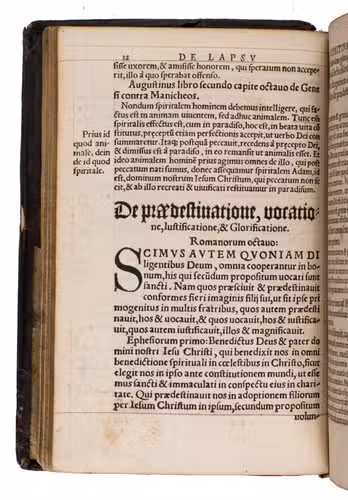 12 DE LAPSV
sisse uxorem, & amisisse honorem, qui speratum non accepe-
rit, illo à quo sperabat offenso.
Augustinus libro secundo capite octauo de Gene
si contra Manicheos.
Nondum spiritalem hominem debemus intelligere, qui fa-
ctus est in animam uiuentem, sed adhuc animalem. Tunc enim
spiritalis effectus est, cum in paradiso, hoc est, in beata uita cõ
stitutus, præceptũ etiam perfectionis accepit, ut uerbo Dei con
summaretur. Itaq; postquã peccauit, recedens à præcepto Dei,
& dimissus est à paradiso, in eo remansit ut animalis esset. Et
ideo animalem hominẽ prius agimus omnes de illo, qui post
peccatum nati sumus, donec assequamur spiritalem Adam, id
est, dominum nostrum Iesum Christum, qui peccatum non fe
cit, & ab illo recreati & uiuificati restituamur in paradisum.
Prius id
quod ani-
male, dein
de id quod
spiritale.
De prædestinatione, vocatio-
ne, Iustificatione, & Glorificatione.
Romanorum octauo:
SCIMVS AVTEM QVONIAM DI
ligentibus Deum, omnia cooperantur in bo-
num, his qui secundum propositum uocati sunt
sancti. Nam quos præsciuit & prædestinauit
conformes fieri imaginis filij sui, ut sit ipse pri
mogenitus in multis fratribus, quos autem prædesti
nauit, hos & uocauit, & quos uocauit, hos & iustifica-
uit, quos autem iustificauit, illos & magnificauit.
Ephesiorum primo: Benedictus Deus & pater do
mini nostri Iesu Christi, qui benedixit nos in omni
benedictione spirituali in cœlestibus in Christo, sicut
elegit nos in ipso ante constitutionem mundi, ut esse
mus sancti & immaculati in conspectu eius in chari-
tate. Qui prædestinauit nos in adoptionem filiorum
per Iesum Christum in ipsum, secundum propositum
uolun-